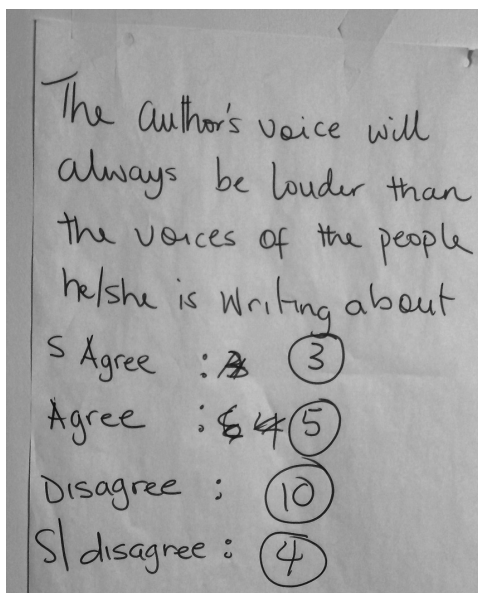 The author's voice will
always be louder than
the voices of the people
he/she is writing about
S Agree : 3
Agree : 4 5
Disagree : 10
S/disagree : 4